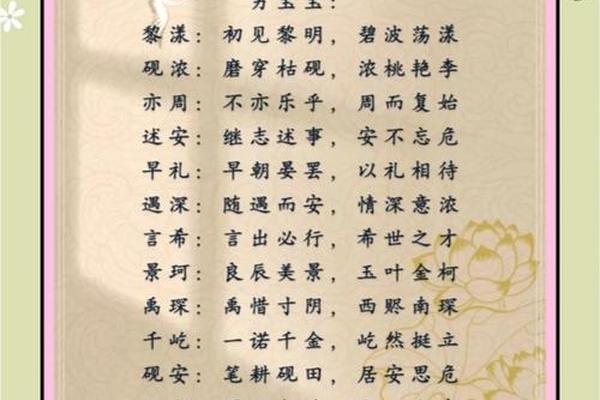 男宝宝：
黎漾：初见黎明，碧波荡漾
砚浓：磨穿枯砚，浓桃艳李
亦周：不亦乐乎，周而复始
述安：继志述事，安不忘危
早礼：早朝晏罢，以礼相待
遇深：随遇而安，情深意浓
言希：言出必行，希世之才
景珂：良辰美景，玉叶金柯
禹琛：禹惜寸阴，西赆南琛
千屹：一诺千金，屹然挺立
砚安：笔耕砚田，居安思危